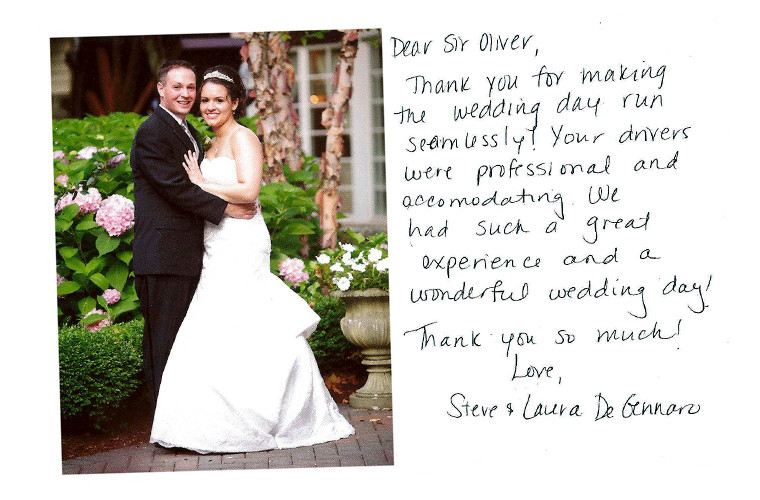 Dear Sir Oliver,
Thank you for making
the wedding day run
seamlessly! Your drivers
were professional and
accomodating. We
had such a great
experience and a
wonderful wedding day!
Thank you so much!
Love,
Steve & Laura De Gennaro